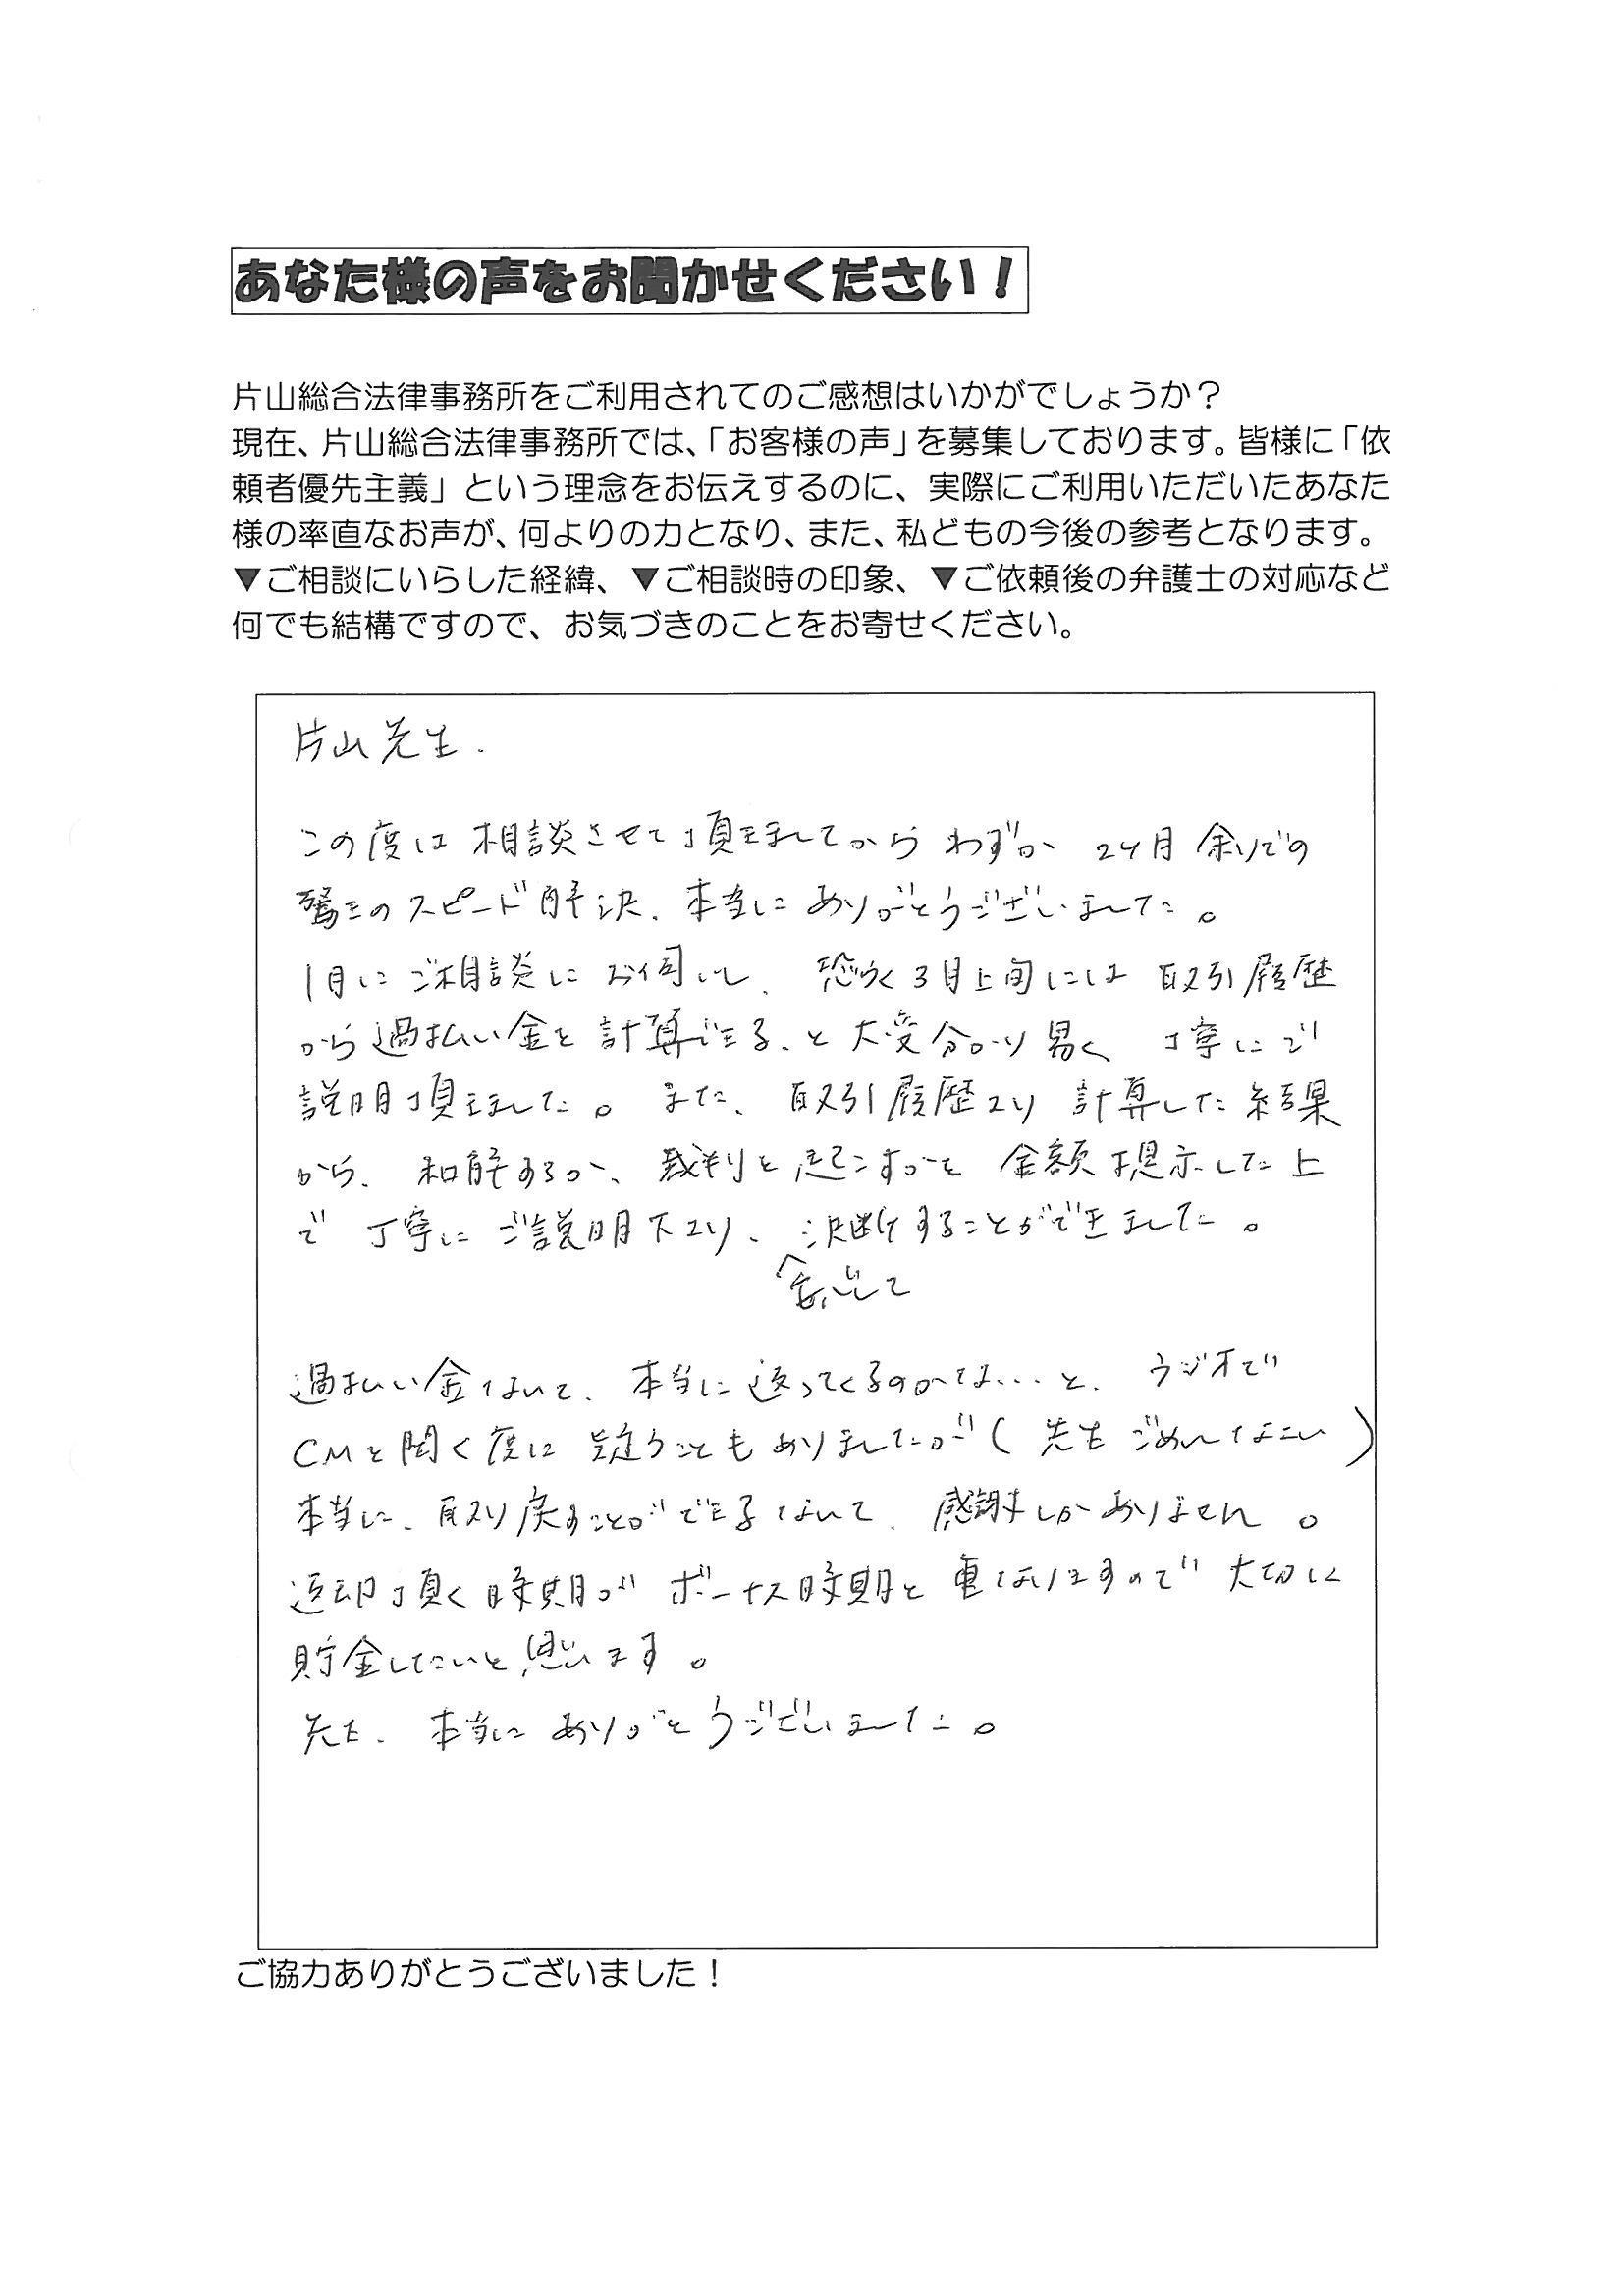 あなた様の声をお聞かせください！
片山総合法律事務所をご利用されてのご感想はいかがでしょうか？
現在、片山総合法律事務所では、「お客様の声」を募集しております。皆様に「依
頼者優先主義」という理念をお伝えするのに、実際にご利用いただいたあなた
様の率直なお声が、何よりの力となり、また、私どもの今後の参考となります。
▼ご相談にいらした経緯、▼ご相談時の印象、▼ご依頼後の弁護士の対応など
何でも結構ですので、お気づきのことをお寄せください。
片山先生.
この度は相談させて頂きましてからわずか 2ヶ月余りでの
驚きのスピード解決、本当にありがとうございました。
1月にご相談にお伺いし、恐らく3月上旬には取引履歴
から過払い金を計算できる、と大変分かり易く丁寧にご
説明頂きました。また、取引履歴より計算した結果
から、和解するか、裁判を起こすかを金額提示した上
で丁寧にご説明下より、決断することができました。
安心して
過払い金なんて、本当に返ってくるのかな...と、ラジオで
CMを聞く度に疑うこともありましたが（先生ごめんなさい）
本当に、取り戻すことができるなんて、感謝しかありません。
返却頂く時期がボーナス時期と重なりますので大切に
貯金したいと思います。
先生、本当にありがとうございました。
ご協力ありがとうございました！